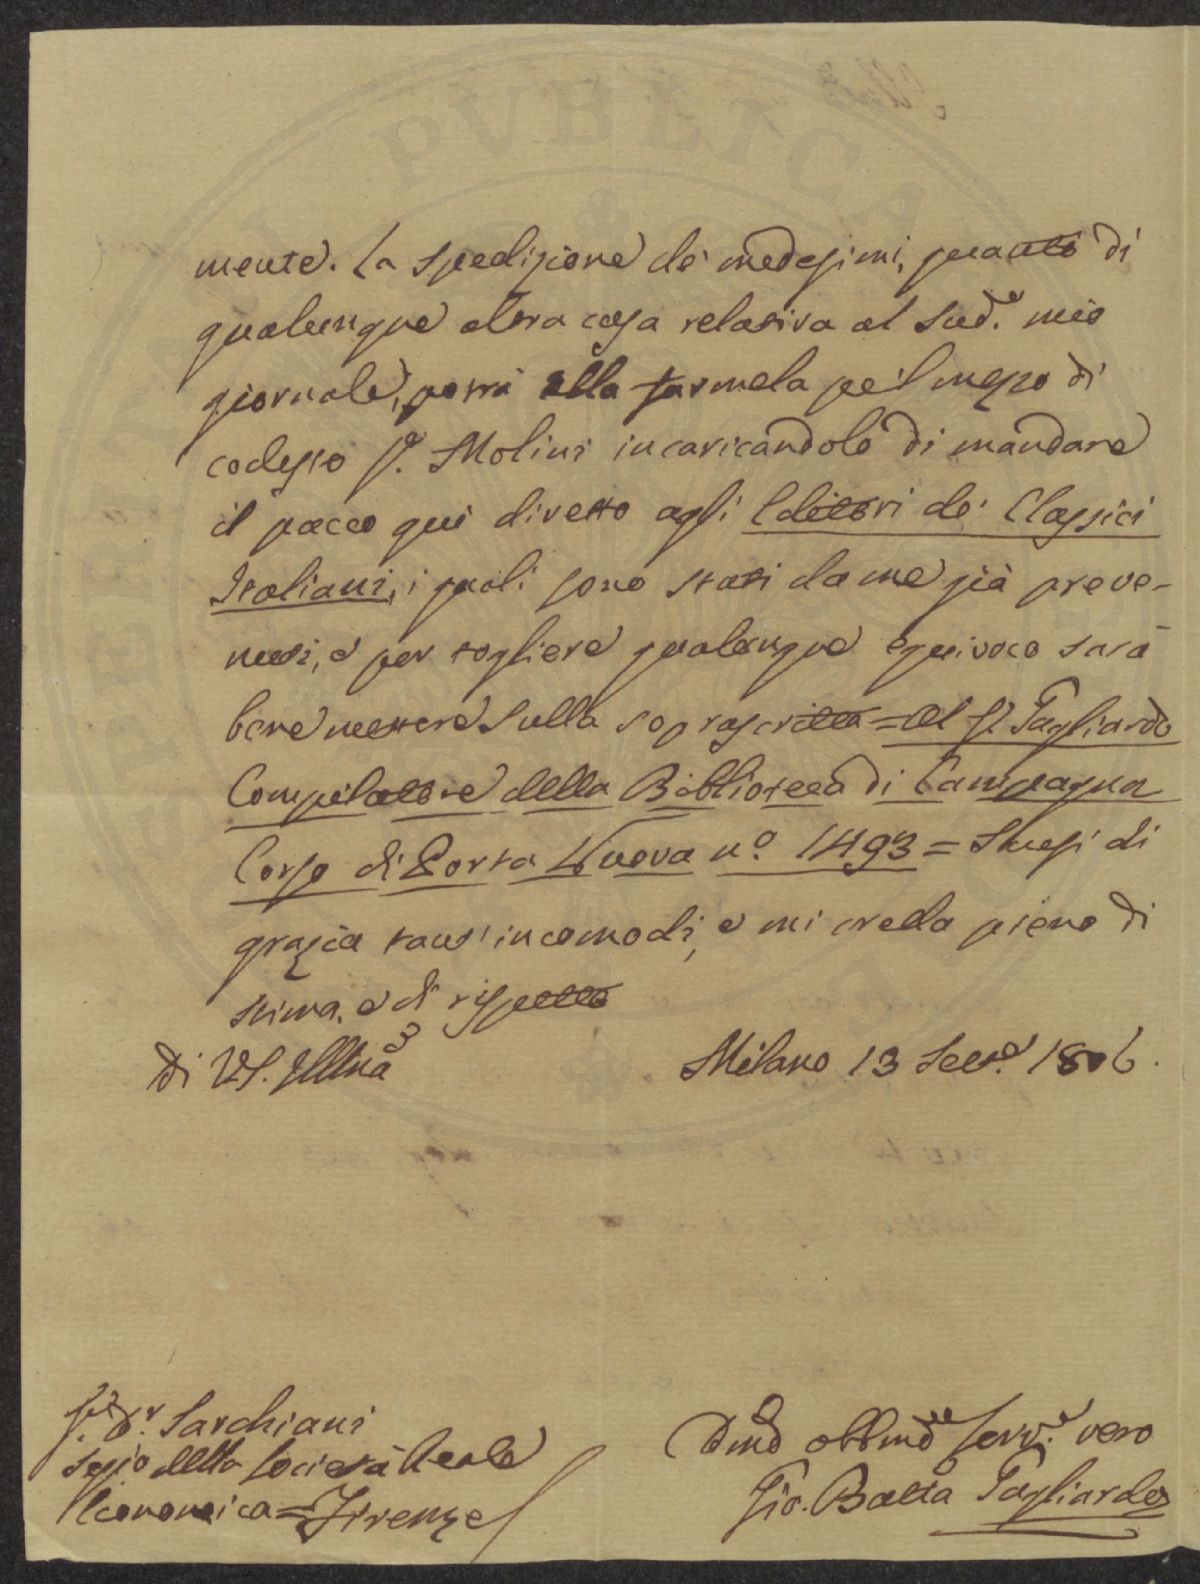 PVBLICA
mente. La spedizione de' medesimi, quanto di
qualunque altra cosa relativa al sud.e mio
giornale, potrà ella farmela pe'l mezzo di
codesto S.r Molini incaricandolo di mandare
il pacco qui diretto agli Editori de' Classici
Italiani, i quali sono stati da me già preve-
nuti, e per togliere qualunque equivoco sarà
bene mettere sulla soprascritta = Al S.r Tagliardo
Compilatore della Biblioteca di Campagna
Corso di Porta Nuova n.o 1493 = Scusi di
grazia tant' incomodi, e mi creda pieno di
stima, e di rispetto
di V.S. Illma
Milano 13 Sett.e 1806.
S.r D.r Sarchiani
Seg.io della Società Reale
Economica = Firenze
Dmo obbmo Serv.e vero
Gio. Batta Tagliardo